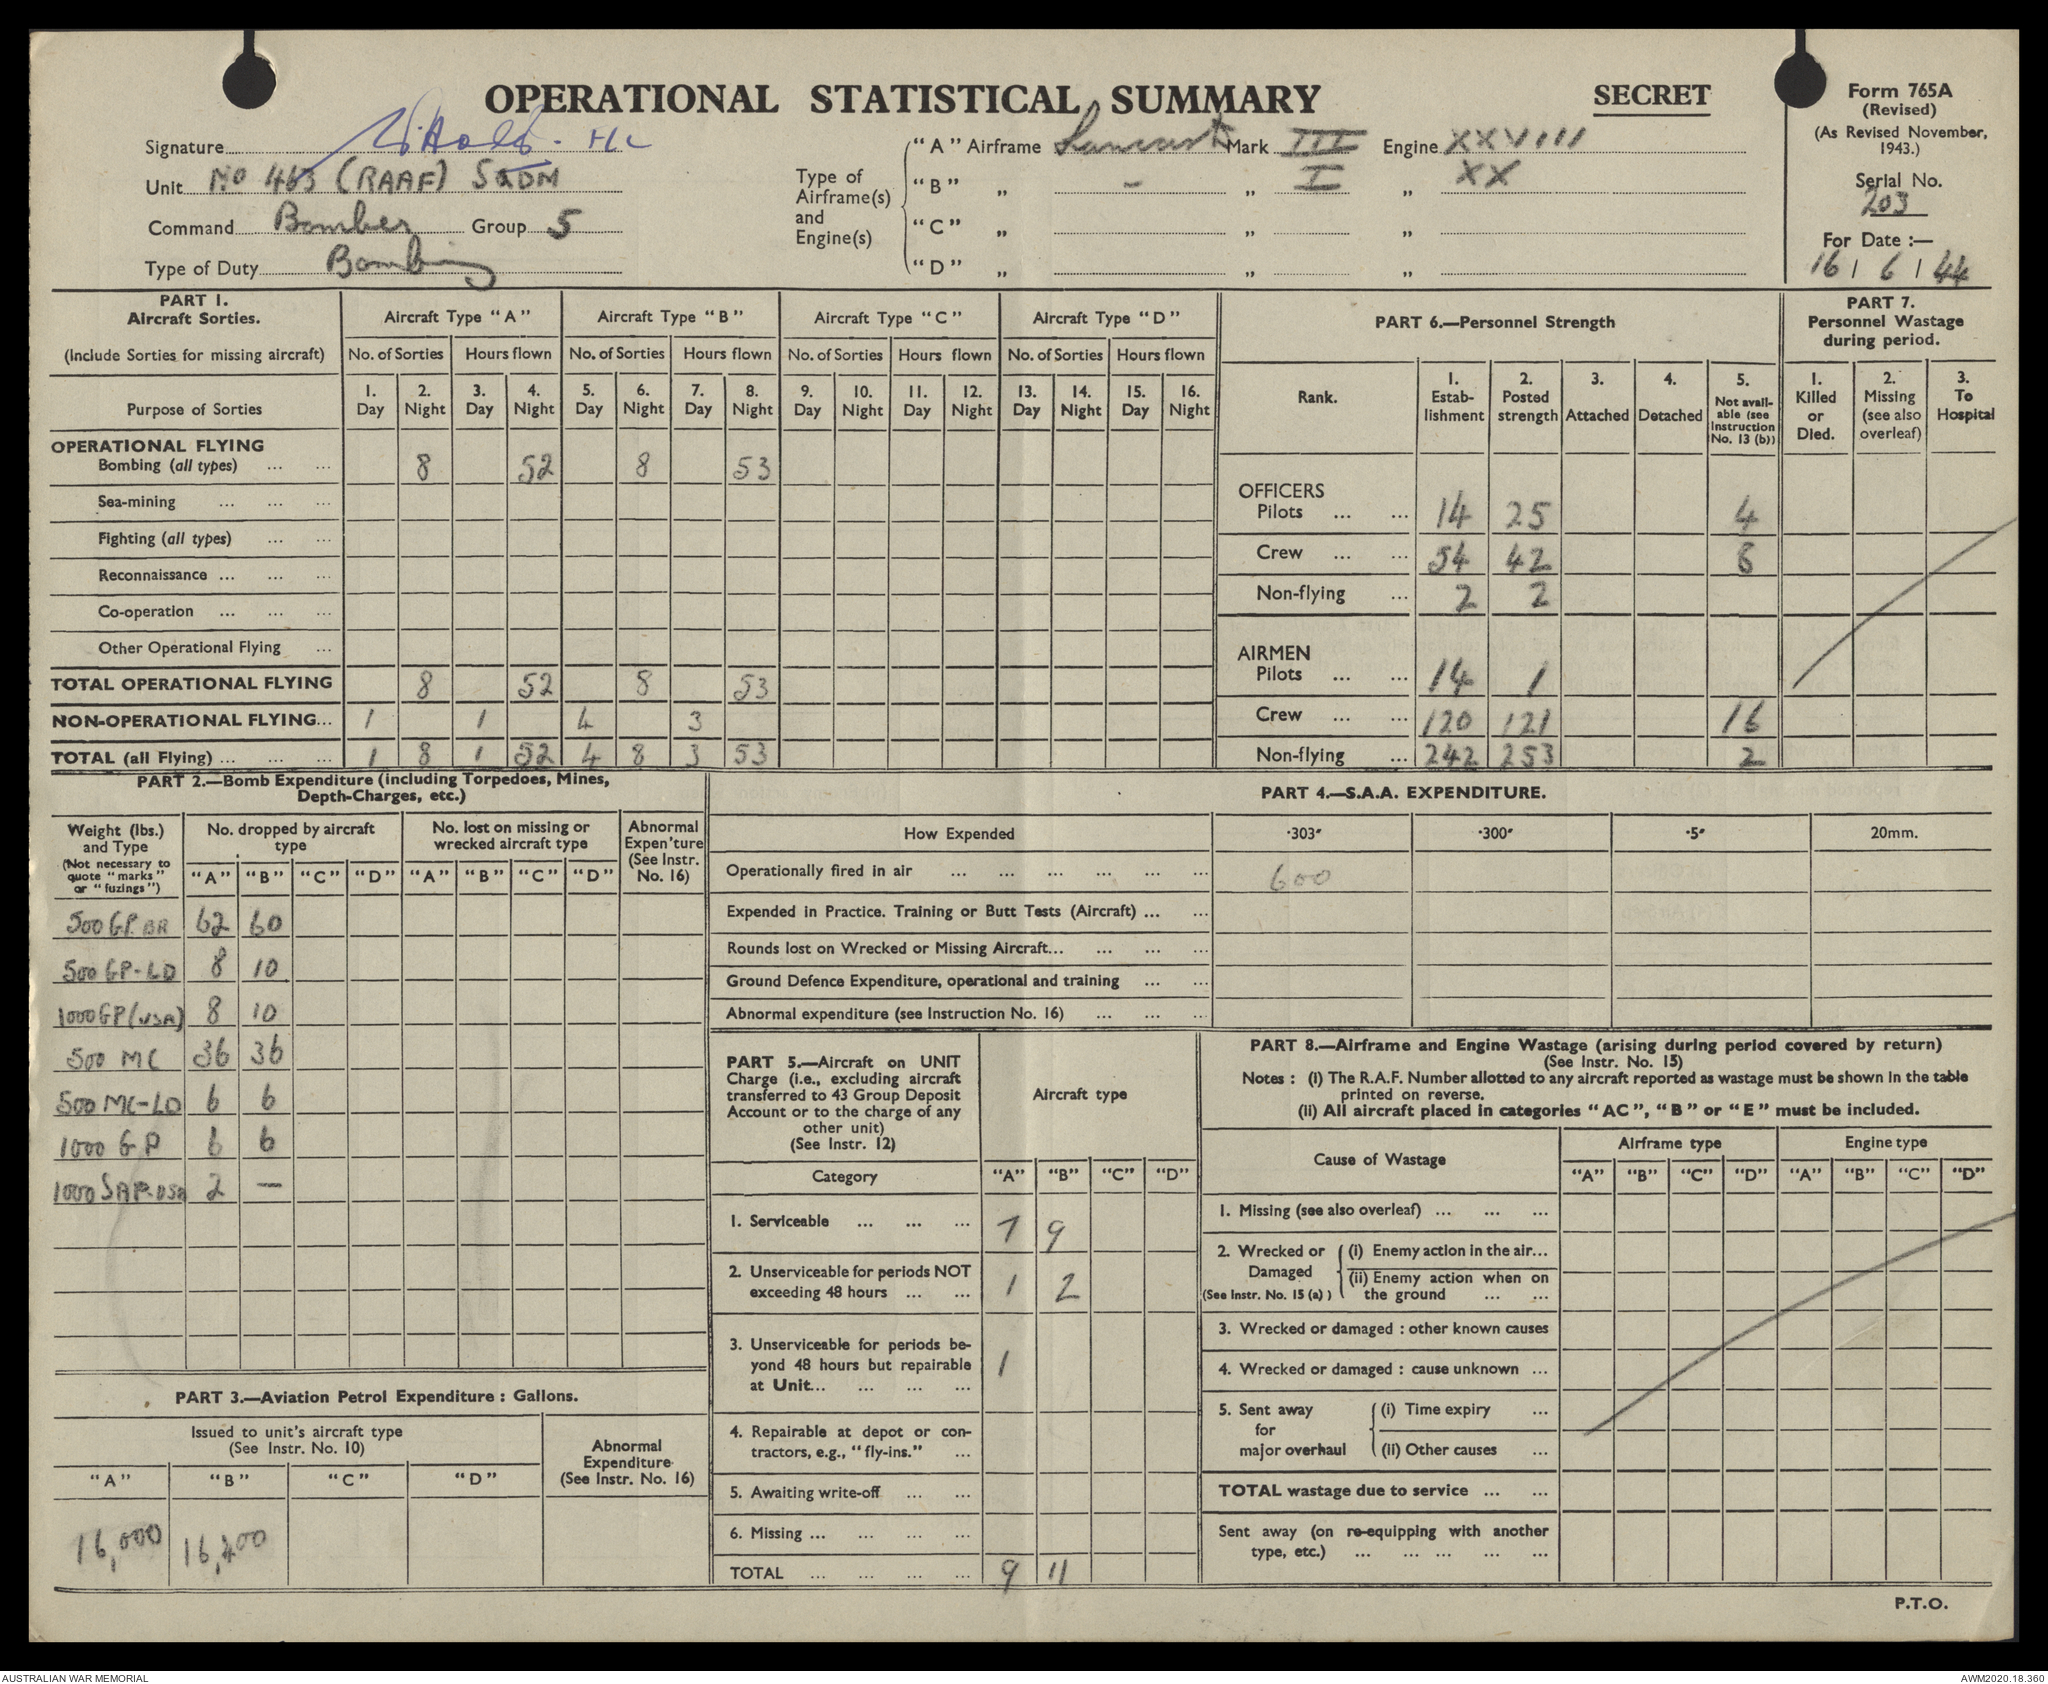 OPERATIONAL STATISTICAL SUMMARY
SECRET
Form 765A
(Revised)
(As Revised November, 1943.)
Serial No.
203
For Date :—
16 / 6 / 44
Signature
Unit No 463 (RAAF) SQDN
Command Bomber Group 5
Type of Duty Bombing
Type of Airframe(s) and Engine(s)
"A" Airframe Lancaster Mark III Engine XXVIII
"B" „ - „ I „ XX
"C" „ „ „
"D" „ „ „
PART 1.
Aircraft Sorties.
(Include Sorties for missing aircraft)
Purpose of Sorties
Aircraft Type "A" Aircraft Type "B" Aircraft Type "C" Aircraft Type "D"
No. of Sorties Hours flown No. of Sorties Hours flown No. of Sorties Hours flown No. of Sorties Hours flown
1. Day 2. Night 3. Day 4. Night 5. Day 6. Night 7. Day 8. Night 9. Day 10. Night 11. Day 12. Night 13. Day 14. Night 15. Day 16. Night
OPERATIONAL FLYING
Bombing (all types) ... ... 8 52 8 53
Sea-mining ... ... ...
Fighting (all types) ... ...
Reconnaissance ... ... ...
Co-operation ... ... ...
Other Operational Flying ...
TOTAL OPERATIONAL FLYING 8 52 8 53
NON-OPERATIONAL FLYING... 1 1 4 3
TOTAL (all Flying) ... ... ... 1 8 1 52 4 8 3 53
PART 6.—Personnel Strength
Rank.
1. Estab- lishment
2. Posted strength
3. Attached
4. Detached
5. Not avail- able (see Instruction No. 13 (b))
OFFICERS
Pilots ... ... 14 25 4
Crew ... ... 54 42 8
Non-flying ... 2 2
AIRMEN
Pilots ... ... 14 1
Crew ... ... 120 121 16
Non-flying ... 242 253 2
PART 7.
Personnel Wastage during period.
1. Killed or Died.
2. Missing (see also overleaf)
3. To Hospital
PART 2.—Bomb Expenditure (including Torpedoes, Mines,
Depth-Charges, etc.)
Weight (lbs.) and Type
(Not necessary to quote "marks" or "fuzings")
No. dropped by aircraft type
No. lost on missing or wrecked aircraft type
Abnormal Expen'ture (See Instr. No. 16)
"A" "B" "C" "D" "A" "B" "C" "D"
500 GP. BR 62 60
500 GP-LD 8 10
1000 GP (USA) 8 10
500 MC 36 36
500 MC-LD 6 6
1000 GP 6 6
1000 SAP-USA 2 —
PART 3.—Aviation Petrol Expenditure : Gallons.
Issued to unit's aircraft type
(See Instr. No. 10)
Abnormal Expenditure (See Instr. No. 16)
"A" "B" "C" "D"
16,000 16,400
PART 4.—S.A.A. EXPENDITURE.
How Expended ·303″ ·300″ ·5″ 20mm.
Operationally fired in air ... ... ... ... ... ... 600
Expended in Practice. Training or Butt Tests (Aircraft) ... ...
Rounds lost on Wrecked or Missing Aircraft... ... ... ...
Ground Defence Expenditure, operational and training ... ...
Abnormal expenditure (see Instruction No. 16) ... ... ...
PART 5.—Aircraft on UNIT
Charge (i.e., excluding aircraft
transferred to 43 Group Deposit
Account or to the charge of any
other unit)
(See Instr. 12)
Aircraft type
Category "A" "B" "C" "D"
1. Serviceable ... ... ... 7 9
2. Unserviceable for periods NOT
exceeding 48 hours ... ... 1 2
3. Unserviceable for periods be-
yond 48 hours but repairable
at Unit... ... ... ... 1
4. Repairable at depot or con-
tractors, e.g., "fly-ins." ...
5. Awaiting write-off ... ...
6. Missing ... ... ... ...
TOTAL ... ... ... ... 9 11
PART 8.—Airframe and Engine Wastage (arising during period covered by return)
(See Instr. No. 15)
Notes : (i) The R.A.F. Number allotted to any aircraft reported as wastage must be shown in the table
printed on reverse.
(ii) All aircraft placed in categories "AC", "B" or "E" must be included.
Cause of Wastage
Airframe type Engine type
"A" "B" "C" "D" "A" "B" "C" "D"
1. Missing (see also overleaf) ... ... ...
2. Wrecked or Damaged (See Instr. No. 15 (a) )
(i) Enemy action in the air...
(ii) Enemy action when on
the ground ... ...
3. Wrecked or damaged : other known causes
4. Wrecked or damaged : cause unknown ...
5. Sent away for major overhaul
(i) Time expiry ...
(ii) Other causes ...
TOTAL wastage due to service ... ...
Sent away (on re-equipping with another
type, etc.) ... ... ... ... ...
P.T.O.
AUSTRALIAN WAR MEMORIAL
AWM2020.18.360